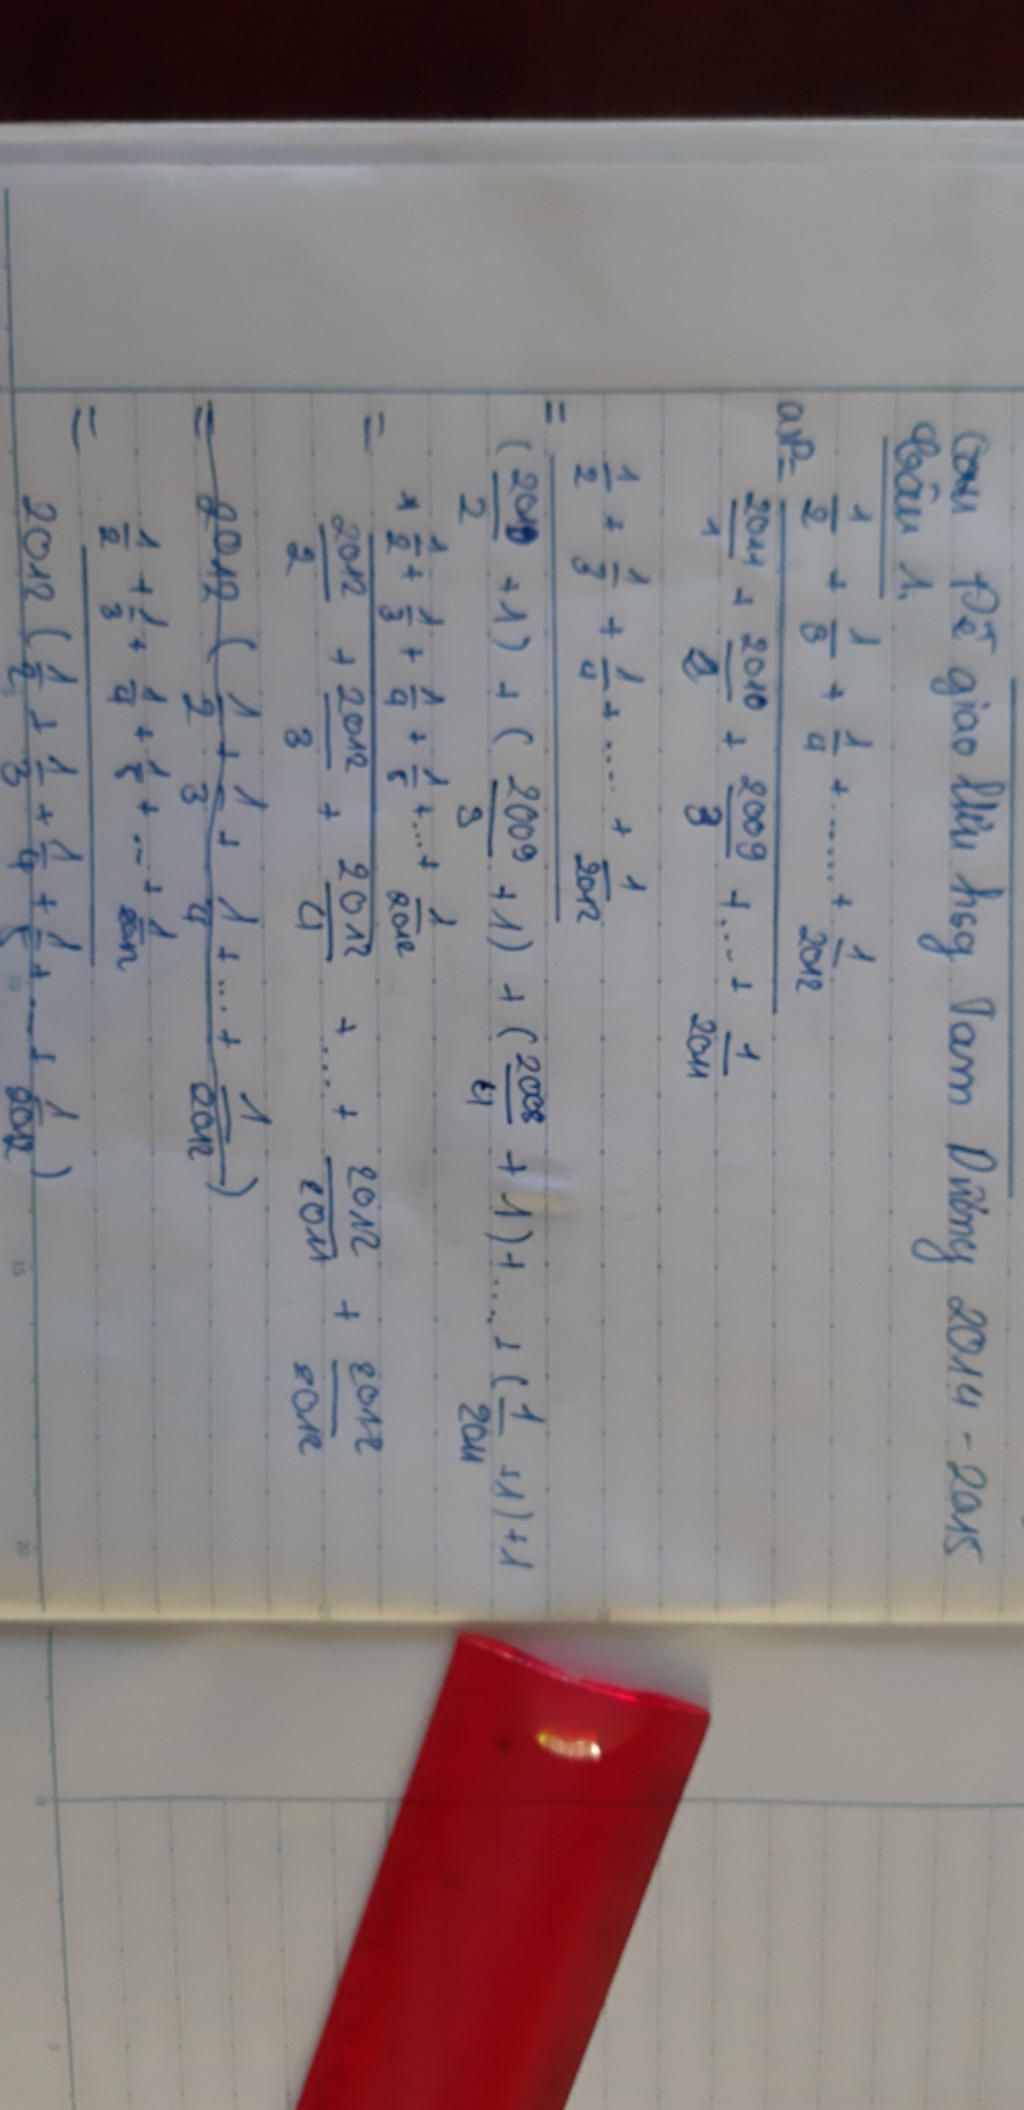 giao lưu hsg Tam Dương 2014 - 2015
1.
a) P = 1/2 + 1/3 + 1/4 + ..... + 1/2012
2011/1 + 2010/2 + 2009/3 + ... + 1/2011
= 1/2 + 1/3 + 1/4 + .... + 1/2012
(2010/2 + 1) + (2009/3 + 1) + (2008/4 + 1) + .... + (1/2011 + 1) + 1
= 1/2 + 1/3 + 1/4 + 1/5 + ... + 1/2012
2012/2 + 2012/3 + 2012/4 + .... + 2012/2011 + 2012/2012
= 2012 (1/2 + 1/3 + 1/4 + ... + 1/2012)
= 1/2 + 1/3 + 1/4 + 1/5 + ... + 1/2012
2012 (1/2 + 1/3 + 1/4 + 1/5 + ... + 1/2012)
10
15
20
0
5